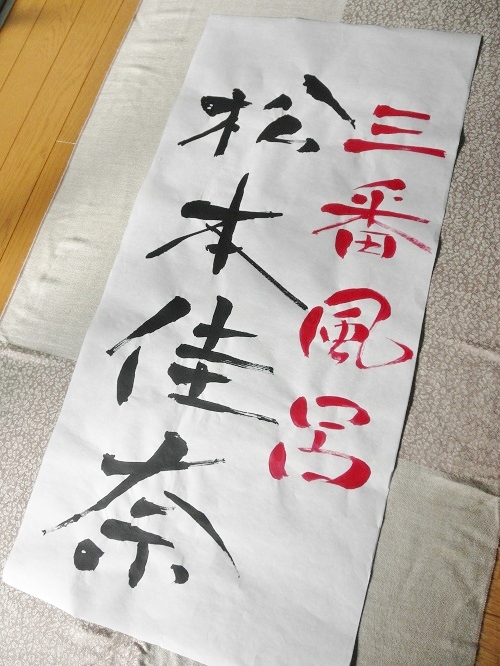 三番風呂
松本佳奈